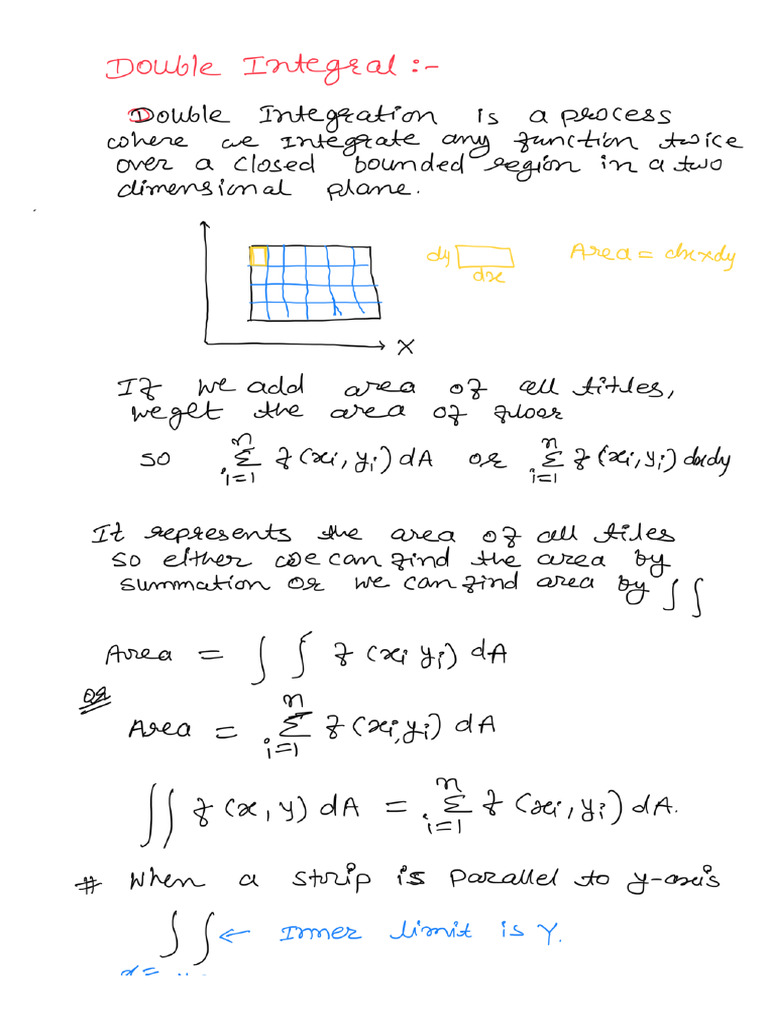 Double Integral :-
Double Integration is a process
where we integrate any function twice
over a closed bounded region in a two
dimensional plane.
dy
dx
Area = dx×dy
X
If we add area of all titles,
we get the area of floor
so n Σ i=1 f(xi, yi) dA or n Σ i=1 f(xi, yi) dxdy
It represents the area of all tiles
so either we can find the area by
summation or we can find area by ∫∫
Area = ∫ ∫ f(xi yi) dA
or
Area = n Σ i=1 f(xi, yi) dA
∫∫ f(x, y) dA = n Σ i=1 f(xi, yi) dA.
# When a strip is parallel to y-axis
∫ ∫ ← Inner limit is Y.